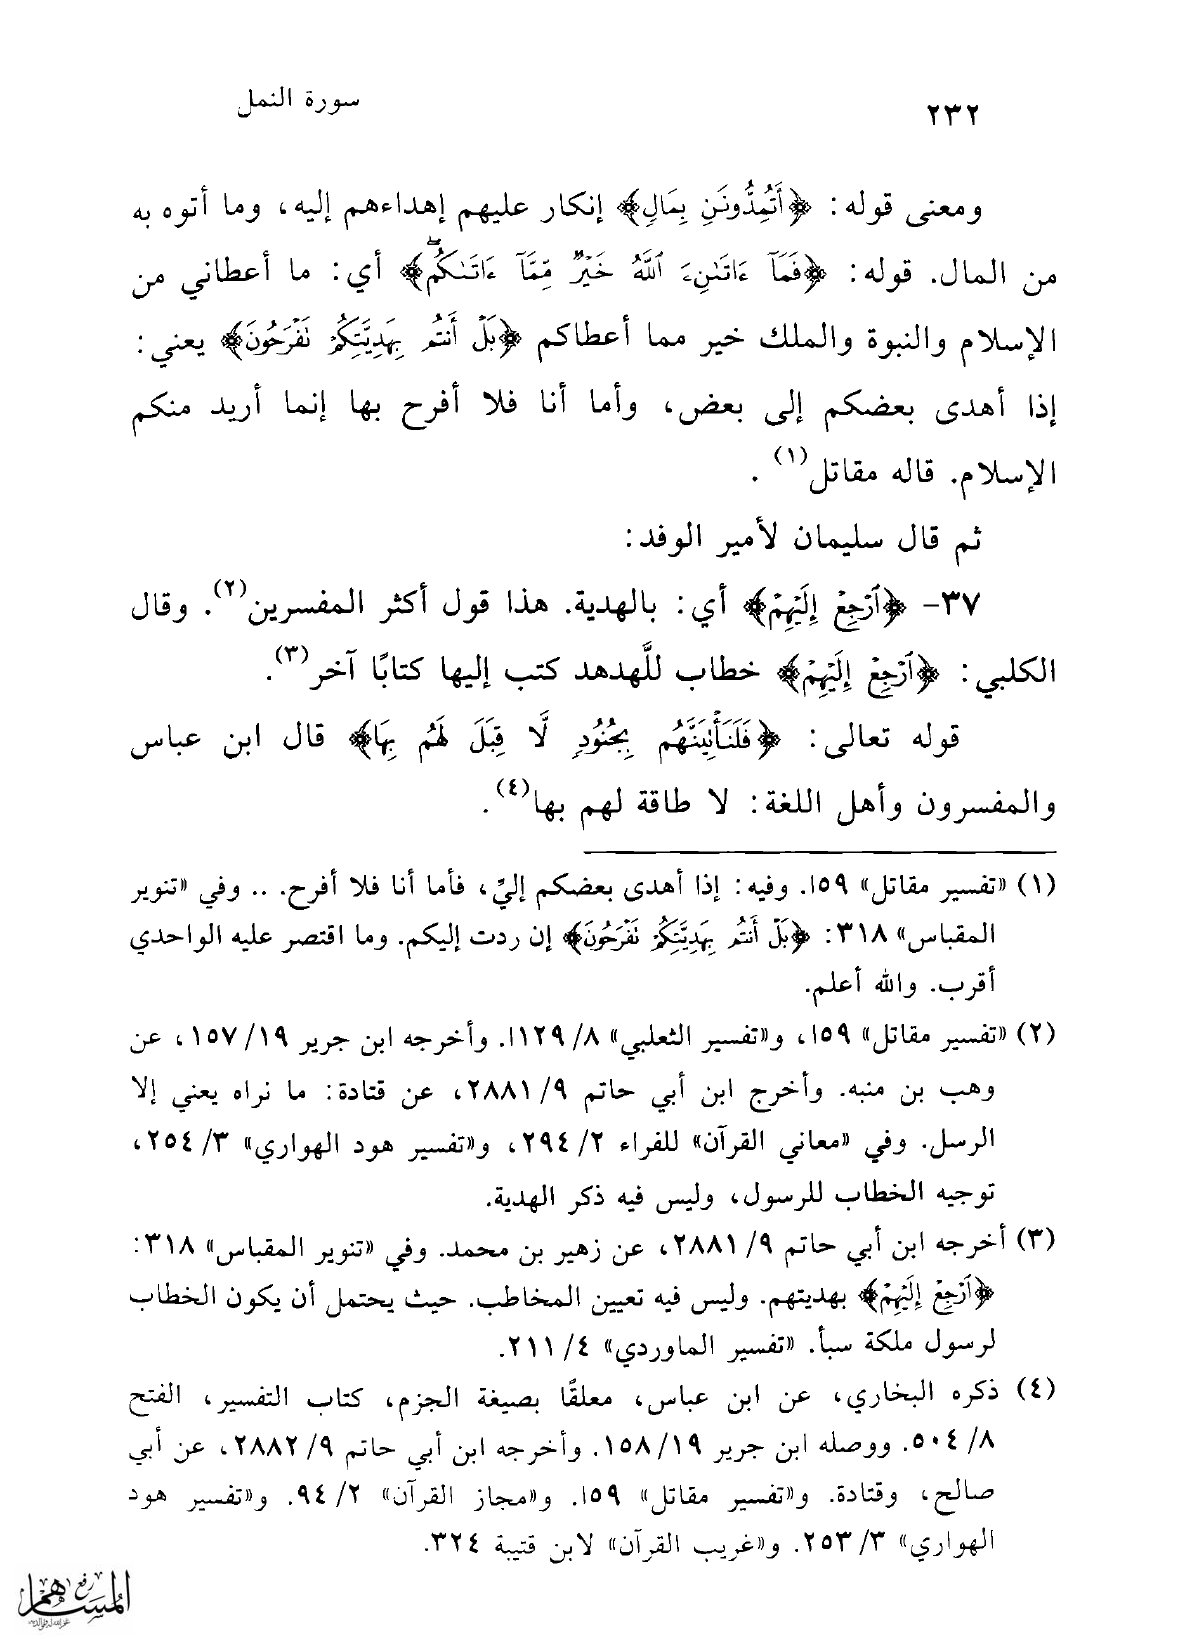 ٢٣٢
سورة النمل
ومعنى قوله: ﴿أَتُمِدُّونَنِ بِمَالٍ﴾ إنكار عليهم إهداءهم إليه، وما أتوه به
من المال. قوله: ﴿فَمَآ ءَاتَىٰنِۦَ ٱللَّهُ خَيْرٌ مِّمَّآ ءَاتَىٰكُمۖ﴾ أي: ما أعطاني من
الإسلام والنبوة والملك خير مما أعطاكم ﴿بَلْ أَنتُم بِهَدِيَّتِكُمْ تَفْرَحُونَ﴾ يعني:
إذا أهدى بعضكم إلى بعض، وأما أنا فلا أفرح بها إنما أريد منكم
الإسلام. قاله مقاتل(١).
ثم قال سليمان لأمير الوفد:
٣٧- ﴿ٱرْجِعْ إِلَيْهِمْ﴾ أي: بالهدية. هذا قول أكثر المفسرين(٢). وقال
الكلبي: ﴿ٱرْجِعْ إِلَيْهِمْ﴾ خطاب للَّهدهد كتب إليها كتابًا آخر(٣).
قوله تعالى: ﴿فَلَنَأْتِيَنَّهُم بِجُنُودٍ لَّا قِبَلَ لَهُم بِهَا﴾ قال ابن عباس
والمفسرون وأهل اللغة: لا طاقة لهم بها(٤).
(١) «تفسير مقاتل» ٥٩ا. وفيه: إذا أهدى بعضكم إليّ، فأما أنا فلا أفرح. .. وفي «تنوير
المقباس» ٣١٨: ﴿بَلْ أَنتُم بِهَدِيَّتِكُمْ تَفْرَحُونَ﴾ إن ردت إليكم. وما اقتصر عليه الواحدي
أقرب. والله أعلم.
(٢) «تفسير مقاتل» ٥٩ا، و«تفسير الثعلبي» ٨/ ١٢٩ا. وأخرجه ابن جرير ١٩/ ١٥٧، عن
وهب بن منبه. وأخرج ابن أبي حاتم ٩/ ٢٨٨١، عن قتادة: ما نراه يعني إلا
الرسل. وفي «معاني القرآن» للفراء ٢/ ٢٩٤، و«تفسير هود الهواري» ٣/ ٢٥٤،
توجيه الخطاب للرسول، وليس فيه ذكر الهدية.
(٣) أخرجه ابن أبي حاتم ٩/ ٢٨٨١، عن زهير بن محمد. وفي «تنوير المقباس» ٣١٨:
﴿ٱرْجِعْ إِلَيْهِمْ﴾ بهديتهم. وليس فيه تعيين المخاطب. حيث يحتمل أن يكون الخطاب
لرسول ملكة سبأ. «تفسير الماوردي» ٤/ ٢١١.
(٤) ذكره البخاري، عن ابن عباس، معلقًا بصيغة الجزم، كتاب التفسير، الفتح
٨/ ٥٠٤. ووصله ابن جرير ١٩/ ١٥٨. وأخرجه ابن أبي حاتم ٩/ ٢٨٨٢، عن أبي
صالح، وقتادة. و«تفسير مقاتل» ٥٩ا. و«مجاز القرآن» ٢/ ٩٤. و«تفسير هود
الهواري» ٣/ ٢٥٣. و«غريب القرآن» لابن قتيبة ٣٢٤.